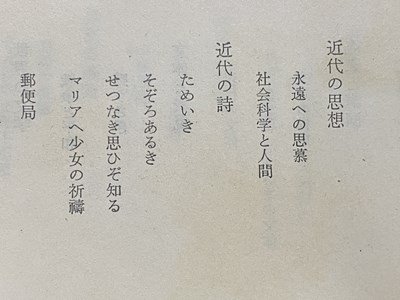 近代の思想
永遠への思慕
社会科学と人間
近代の詩
ためいき
そぞろあるき
せつなき思ひぞ知る
マリアへ少女の祈禱
郵便局